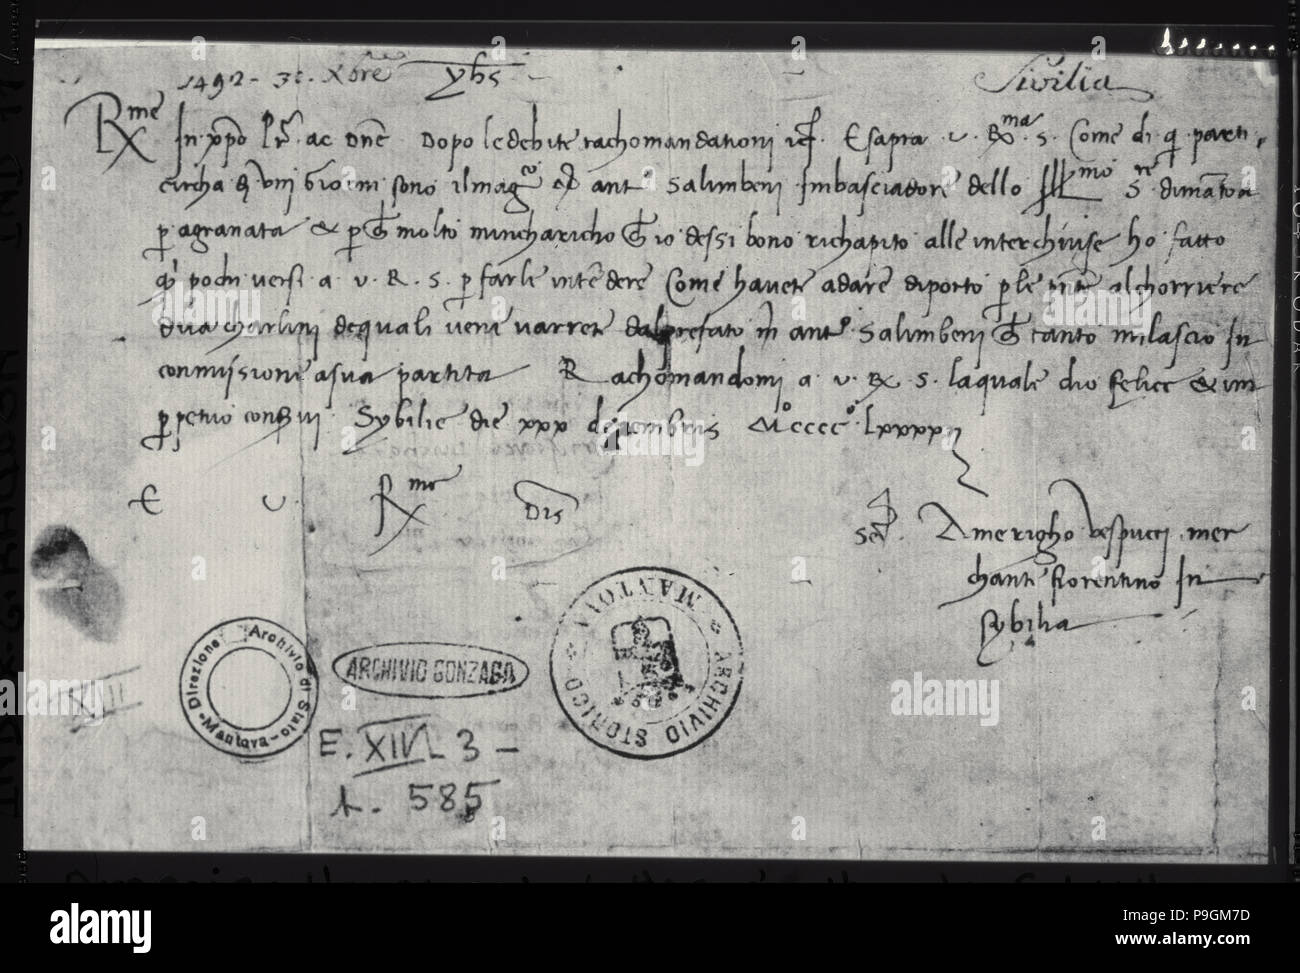 1492 - 31. Xbre yhs
Sivilia
Rx.me In xpo pr. ac Dne Dopo le debite rachomandationi Esapra v. Rx.ma s. Come di q parti
circha q vni giorni sono il mag.co ant.o Salimbeni Imbasciadore dello Ill.mo S.re dimantoa
p agranata & p molto mincharicho io dessi bono richapito alle interchiuse ho fatto
q.i pochi versi a. v. R. S. p farle intēdere Come havete a dare di porto p le al chorriere
dua charlini de quali veni varrete dal prefato ant.o Salimbeni tanto mi lascio In
commissione a sua partita Rachomandomi a. v. Rx. S. la quale dio felice & in
p petuo conservi Sybilie die xxx decembris M.o cccc.o lxxxxij
E v. Rx.me Dīs
Ser. Amerigho vespucci mer
chante fiorentino In
Sybilia
Direzione Archivio di Stato - Mantova -
ARCHIVIO GONZAGA
ARCHIVIO STORICO MANTOVA
XIII
E. XIV 3 -
585
KODAK
alamy
Image ID: P9GM7D
www.alamy.com